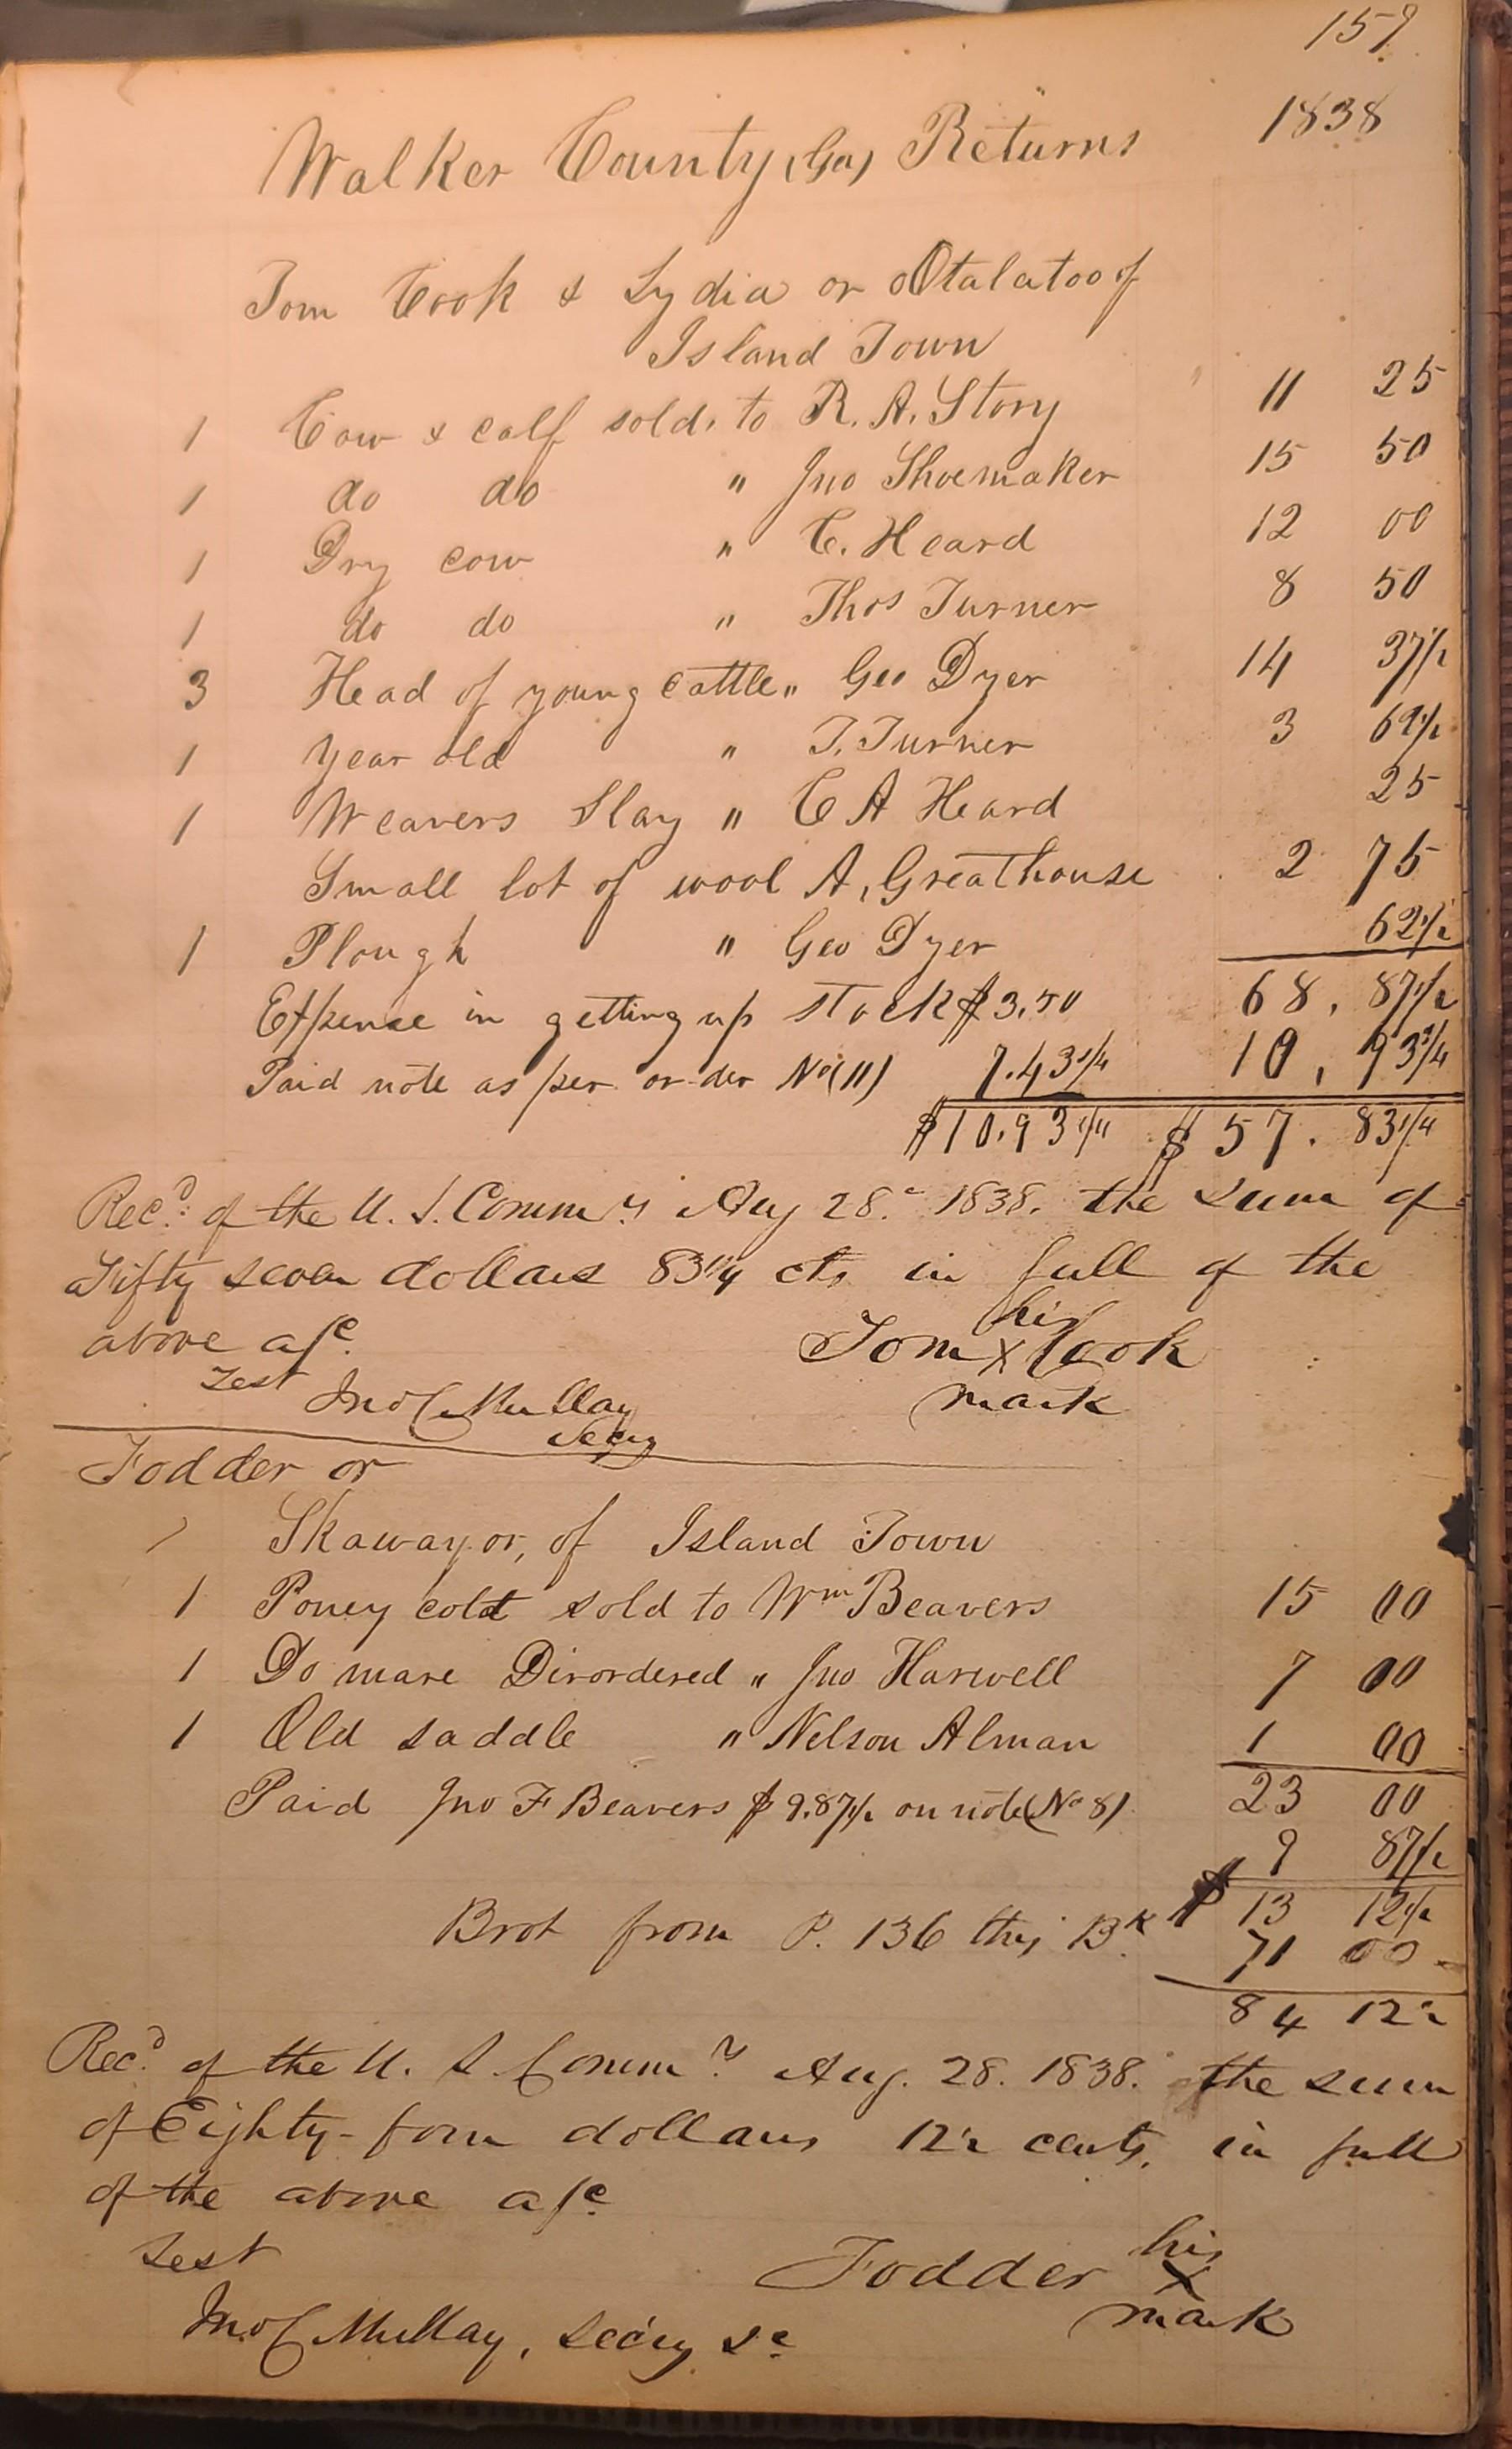 159
1838
Walker County (Ga) Returns
Tom Cook & Lydia or Otalatoo of
Island Town
1 Cow & calf sold, to R. A. Story 11 25
1 do do " Jno Shoemaker 15 50
1 Dry cow " C. Heard 12 00
1 do do " Thos Turner 8 50
3 Head of young cattle " Geo Dyer 14 37½
1 Year old " T. Turner 3 62½
1 Weavers Slay " C A Heard 25
Small lot of wool A, Greathouse 2 75
1 Plough " Geo Dyer 62½
Expense in getting up stock $3.50 68. 87½
Paid note as per order No (11) 7.43¾ 10. 93¾
$10.93¾ $57. 83¼
Recd. of the U. S. Commrs Aug 28. 1838. the sum of
Fifty seven dollars 83¼ cts in full of the
above a/c. his
Tom X Cook
Test mark
Jno C Mullay
Secy
Fodder or
Skawayor, of Island Town
1 Poney colt sold to Wm Beavers 15 00
1 Do mare Disordered " Jno Harwell 7 00
1 Old saddle " Nelson Alman 1 00
Paid Jno F Beavers $9.87½ on note (No 8) 23 00
9 87½
$ 13 12½
Brot from P. 136 this Bk. 71 00
84 12½
Recd. of the U. S. Commr Aug. 28. 1838. the sum
of Eighty-four dollars 12½ cents, in full
of the above a/c.
Test his
Fodder X
mark
Jno C Mullay, Secy